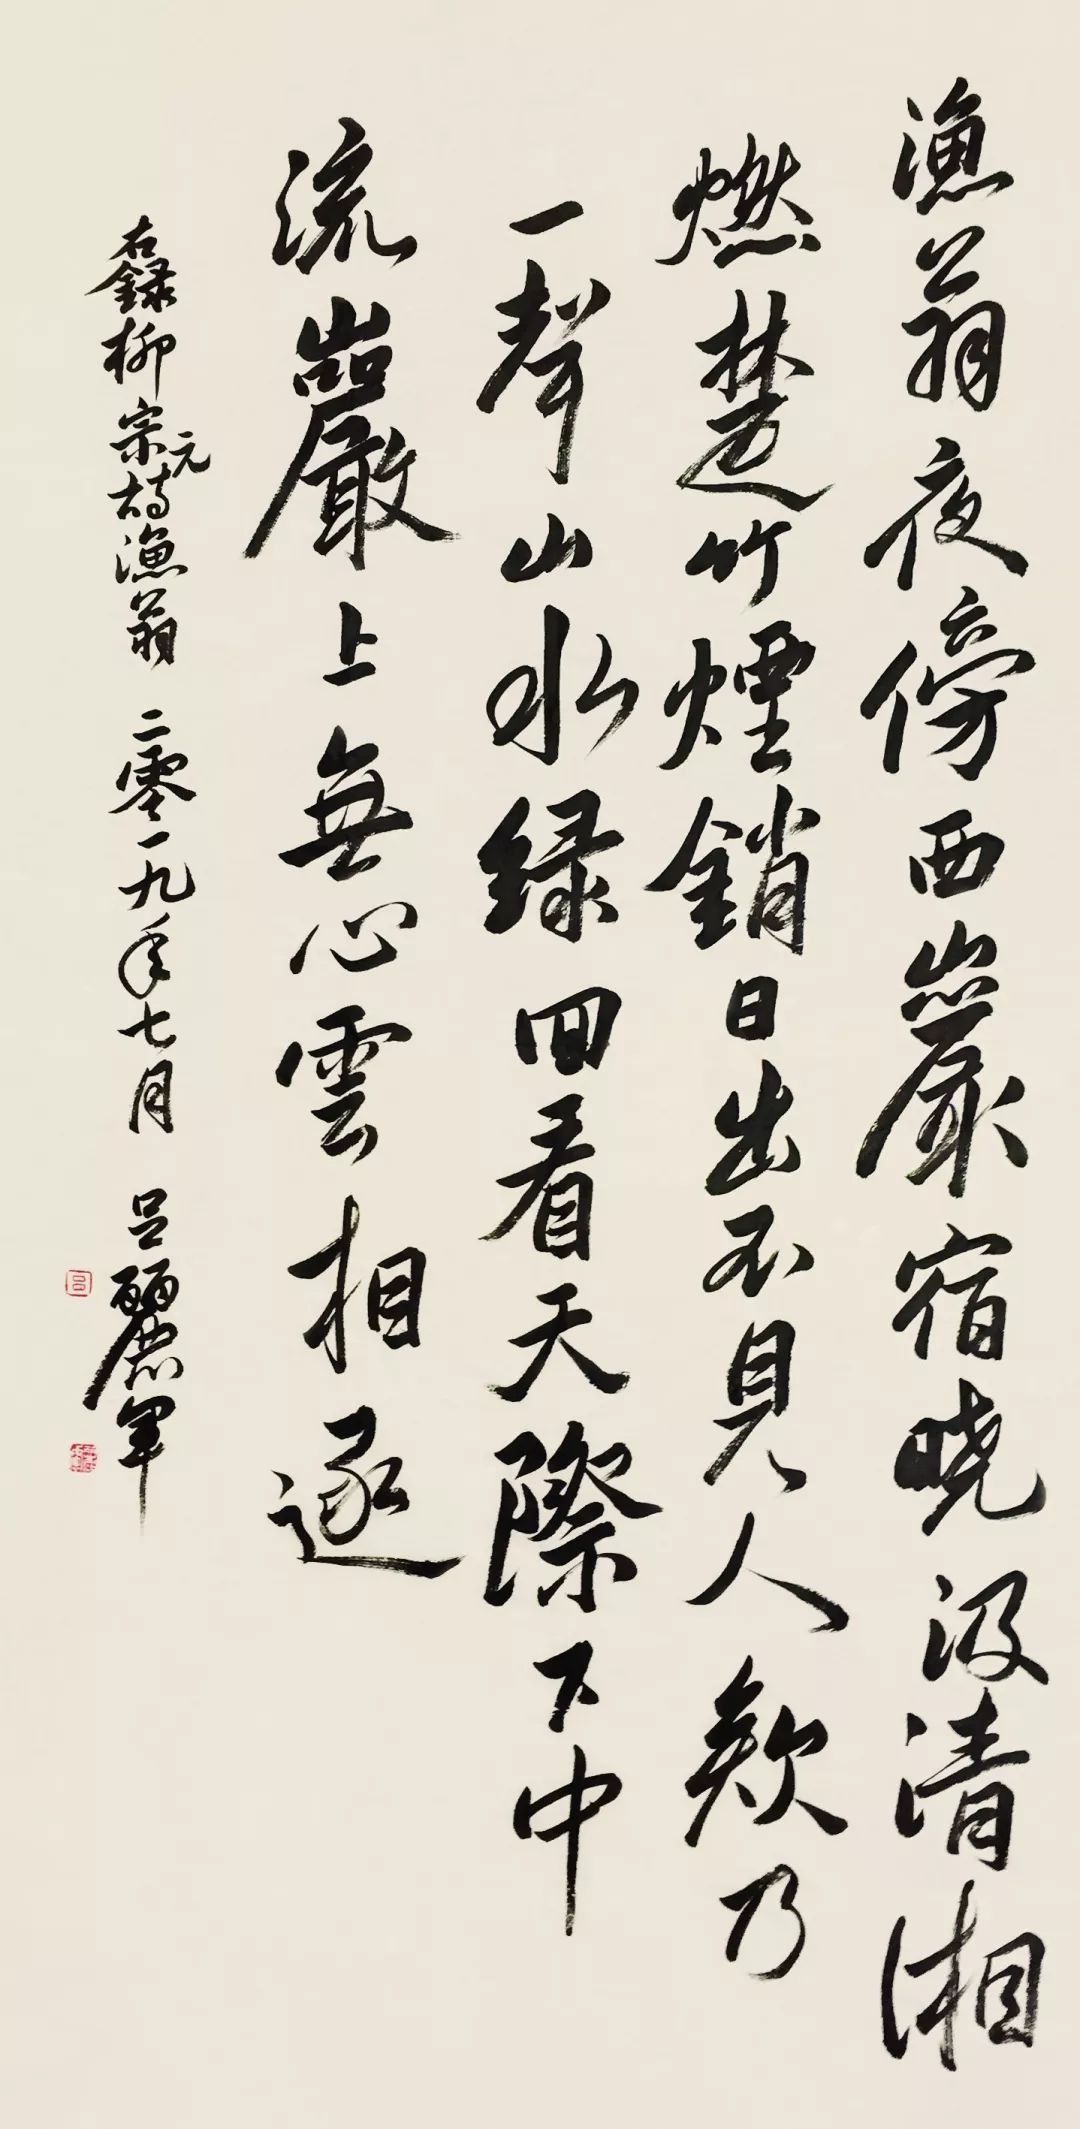 漁翁夜傍西巖宿曉汲清湘
燃楚竹煙銷日出不見人欸乃
一聲山水綠回看天際下中
流巖上無心雲相逐
右錄柳宗元詩漁翁 二零一九年七月 呂麗軍
呂